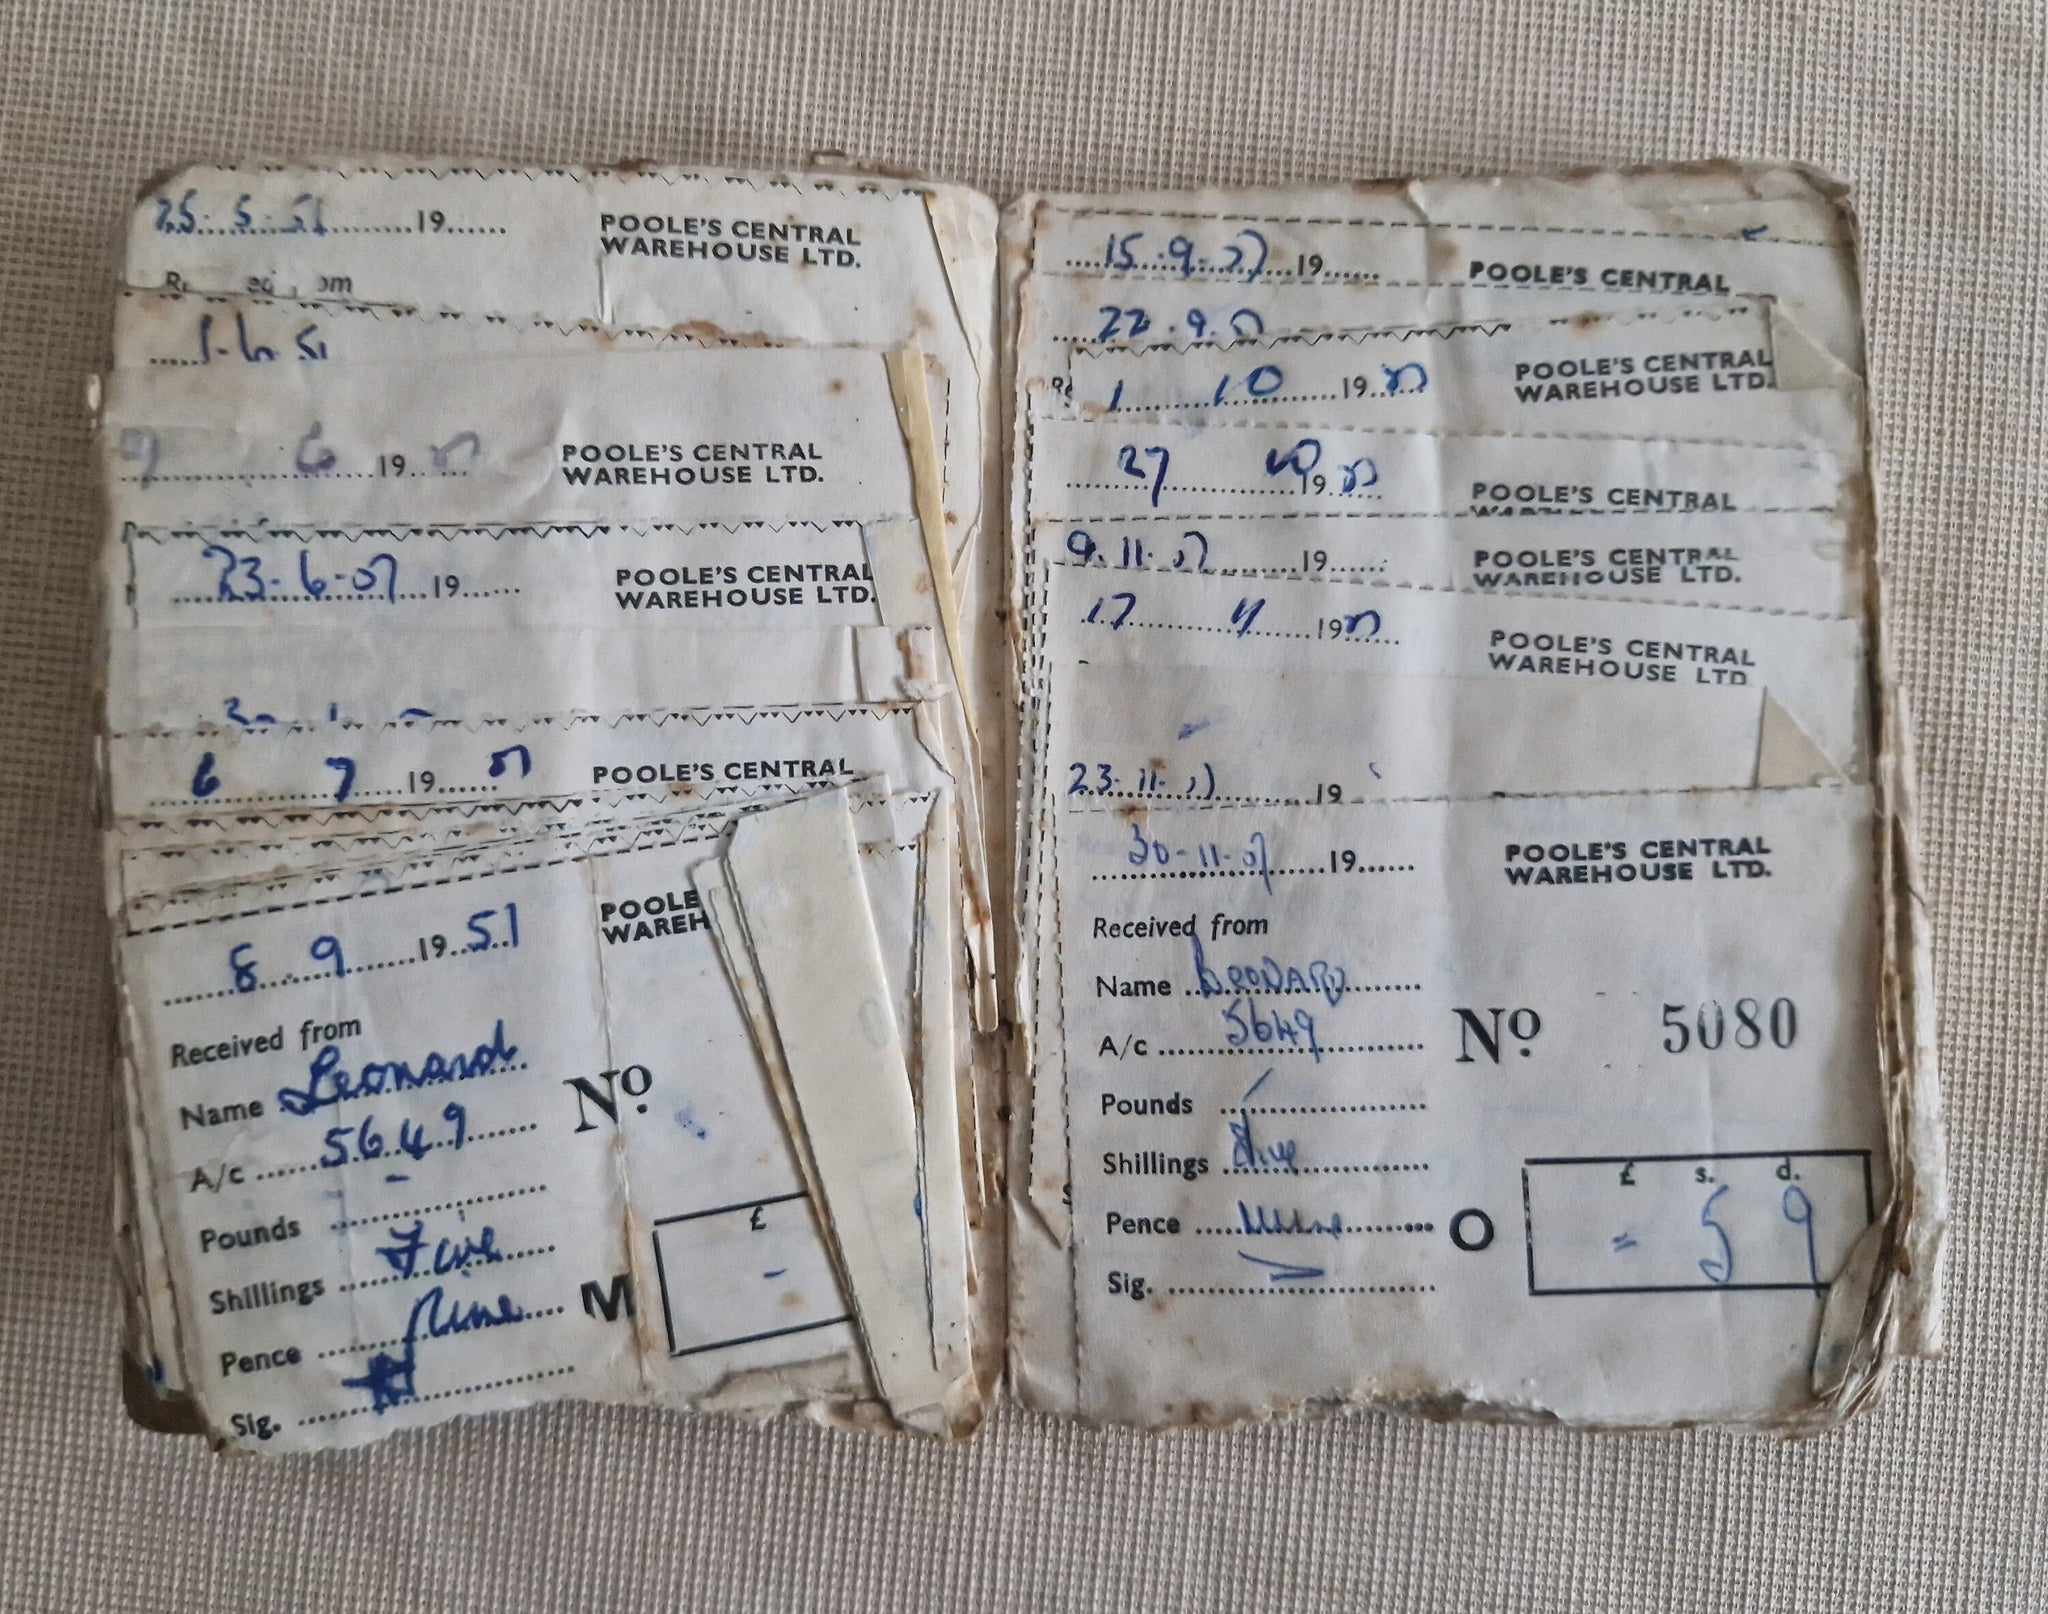 25. 5. 51 19
POOLE'S CENTRAL
WAREHOUSE LTD.
1-6 51
6 19 51
POOLE'S CENTRAL
WAREHOUSE LTD.
23-6-51 19
POOLE'S CENTRAL
WAREHOUSE LTD.
6 7 19 51
POOLE'S CENTRAL
8 . 9 19 51
POOLE
WAREH
Received from
Name Leonard
A/c 5649
Nº
Pounds -
£
Shillings Five
-
Pence Nine
M
Sig.
15.9.51 19
POOLE'S CENTRAL
22.9.51
1 10 19 51
POOLE'S CENTRAL
WAREHOUSE LTD.
27 10 19 51
POOLE'S CENTRAL
9.11.51 19
POOLE'S CENTRAL
WAREHOUSE LTD.
17 11 19 51
POOLE'S CENTRAL
WAREHOUSE LTD
23-11-51 19
30-11-51 19
POOLE'S CENTRAL
WAREHOUSE LTD.
Received from
Name LEONARD
A/c 5649
Nº 5080
Pounds
Shillings Five
£ s. d.
Pence Nine
O
= 5 9
Sig.